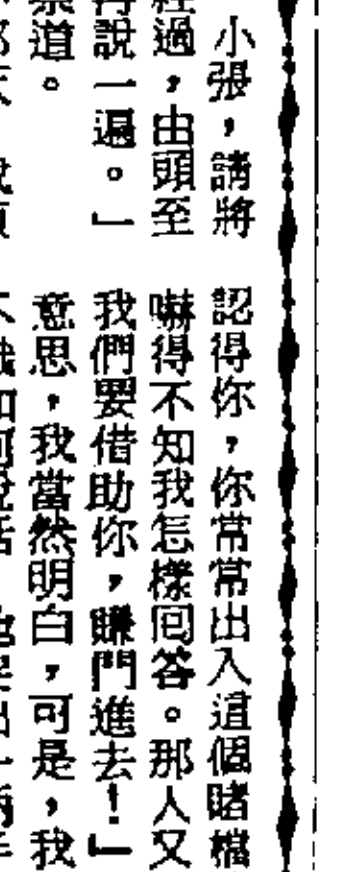 小張，請將
經過，由頭至
再說一遍。」
道。
認得你，你常常出入這個賭檔
嚇得不知我怎樣回答。那人又
我們要借助你，賺門進去！」
意思，我當然明白，可是，我